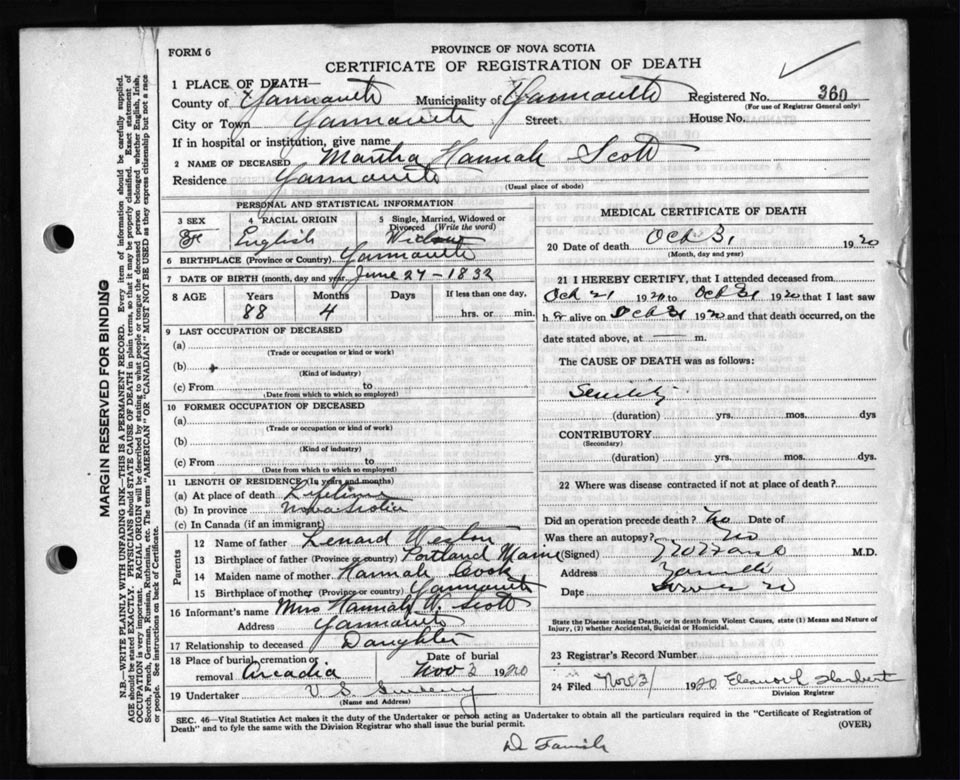 FORM 6
PROVINCE OF NOVA SCOTIA
CERTIFICATE OF REGISTRATION OF DEATH
1 PLACE OF DEATH—
County of Yarmouth Municipality of Yarmouth Registered No. 360
(For use of Registrar General only)
City or Town Yarmouth Street House No.
If in hospital or institution, give name
2 NAME OF DECEASED Martha Hannah Scott
Residence Yarmouth
(Usual place of abode)
PERSONAL AND STATISTICAL INFORMATION
3 SEX 4 RACIAL ORIGIN 5 Single, Married, Widowed or Divorced (Write the word)
English Widow
6 BIRTHPLACE (Province or Country) Yarmouth
7 DATE OF BIRTH (month, day and year) June 27-1832
8 AGE Years Months Days If less than one day,
88 4 hrs. or min.
9 LAST OCCUPATION OF DECEASED
(a)
(Trade or occupation or kind or work)
(b)
(Kind of industry)
(c) From to
(Date from which to which so employed)
10 FORMER OCCUPATION OF DECEASED
(a)
(Trade or occupation or kind of work)
(b)
(Kind of industry)
(c) From to
(Date from which to which so employed)
11 LENGTH OF RESIDENCE (In years and months)
(a) At place of death Lifetime
(b) In province Nova Scotia
(c) In Canada (if an immigrant)
Parents
12 Name of father Lenard Weston
13 Birthplace of father (Province or country) Portland Maine
14 Maiden name of mother Hannah Cook
15 Birthplace of mother (Province or country) Yarmouth
16 Informant's name Miss Hannah W. Scott
Address Yarmouth
17 Relationship to deceased Daughter
18 Place of burial, cremation or removal Arcadia Date of burial Nov 2 1920
19 Undertaker V S Sweeny
(Name and Address)
MEDICAL CERTIFICATE OF DEATH
20 Date of death Oct 31 1920
(Month, day and year)
21 I HEREBY CERTIFY, that I attended deceased from
Oct 21 1920 to Oct 31 1920 that I last saw
h er alive on Oct 31 1920 and that death occurred, on
date stated above, at m.
The CAUSE OF DEATH was as follows:
Senility
(duration) yrs. mos. dys
CONTRIBUTORY
(Secondary)
(duration) yrs. mos. dys.
22 Where was disease contracted if not at place of death?
Did an operation precede death? No Date of
Was there an autopsy? No
(Signed) M.D.
Address
Date
State the Disease causing Death, or in death from Violent Causes, state (1) Means and Nature of Injury, (2) whether Accidental, Suicidal or Homicidal.
23 Registrar's Record Number
24 Filed Nov 3 1920 Eleanor L Harbert
Division Registrar
SEC. 46—Vital Statistics Act makes it the duty of the Undertaker or person acting as Undertaker to obtain all the particulars required in the "Certificate of Registration of
Death" and to fyle the same with the Division Registrar who shall issue the burial permit. (OVER)
MARGIN RESERVED FOR BINDING
N.B.—WRITE PLAINLY WITH UNFADING INK—THIS IS A PERMANENT RECORD. Every item of information should be carefully supplied.
AGE should be stated EXACTLY. PHYSICIANS should STATE CAUSE OF DEATH in plain terms, so that it may be properly classified. Exact statement of
OCCUPATION is very important. RACIAL ORIGIN will be described by stating to what people or tongue the deceased person belonged whether English, Irish,
Scotch, French, German, Russian, Ruthenian, etc. The terms "AMERICAN" OR "CANADIAN" MUST NOT BE USED as they express citizenship but not a race
or people. See instructions on back of Certificate.